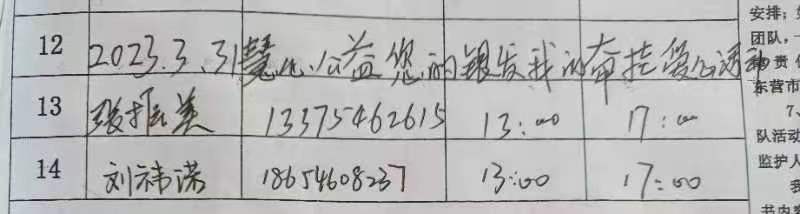 12 2023.3.31慧心公益您的银发我的牵挂爱心活动
13 张振美 13375462615 13:00 17:00
14 刘祎潆 18654608237 13:00 17:00
安排；
团队，
贵
东营市
7、
队活动
监护人
我
书内容